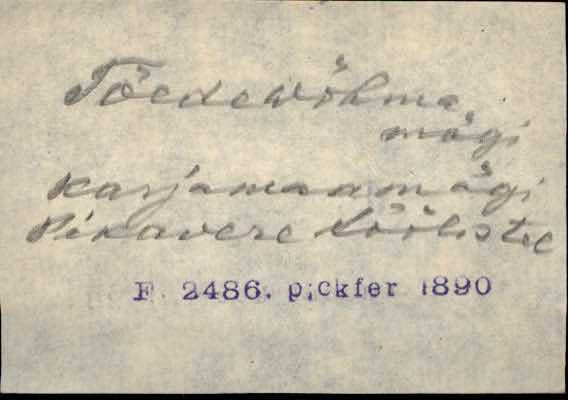 Töedewõhma
mägi
Karjamaamägi
Pikavere
F 2486. p;ckfer 1890